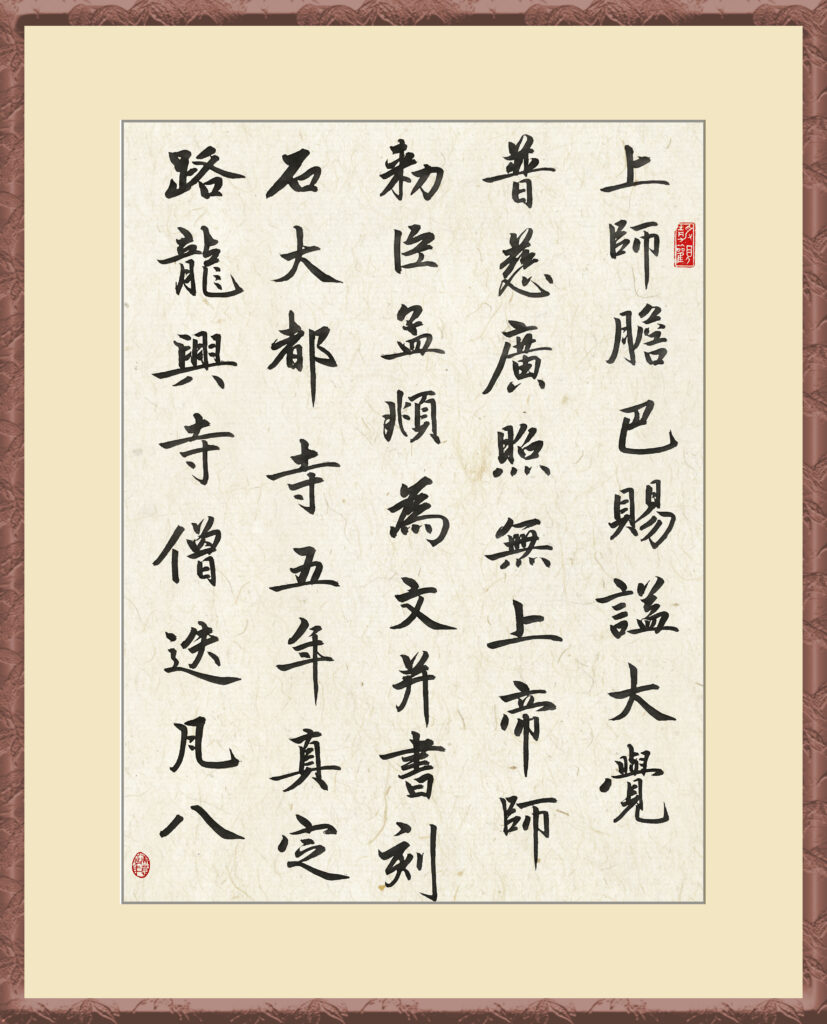 上師膽巴賜謚大覺
普慈廣照無上帝師
勅臣孟頫為文并書刻
石大都寺五年真定
路龍興寺僧迭凡八